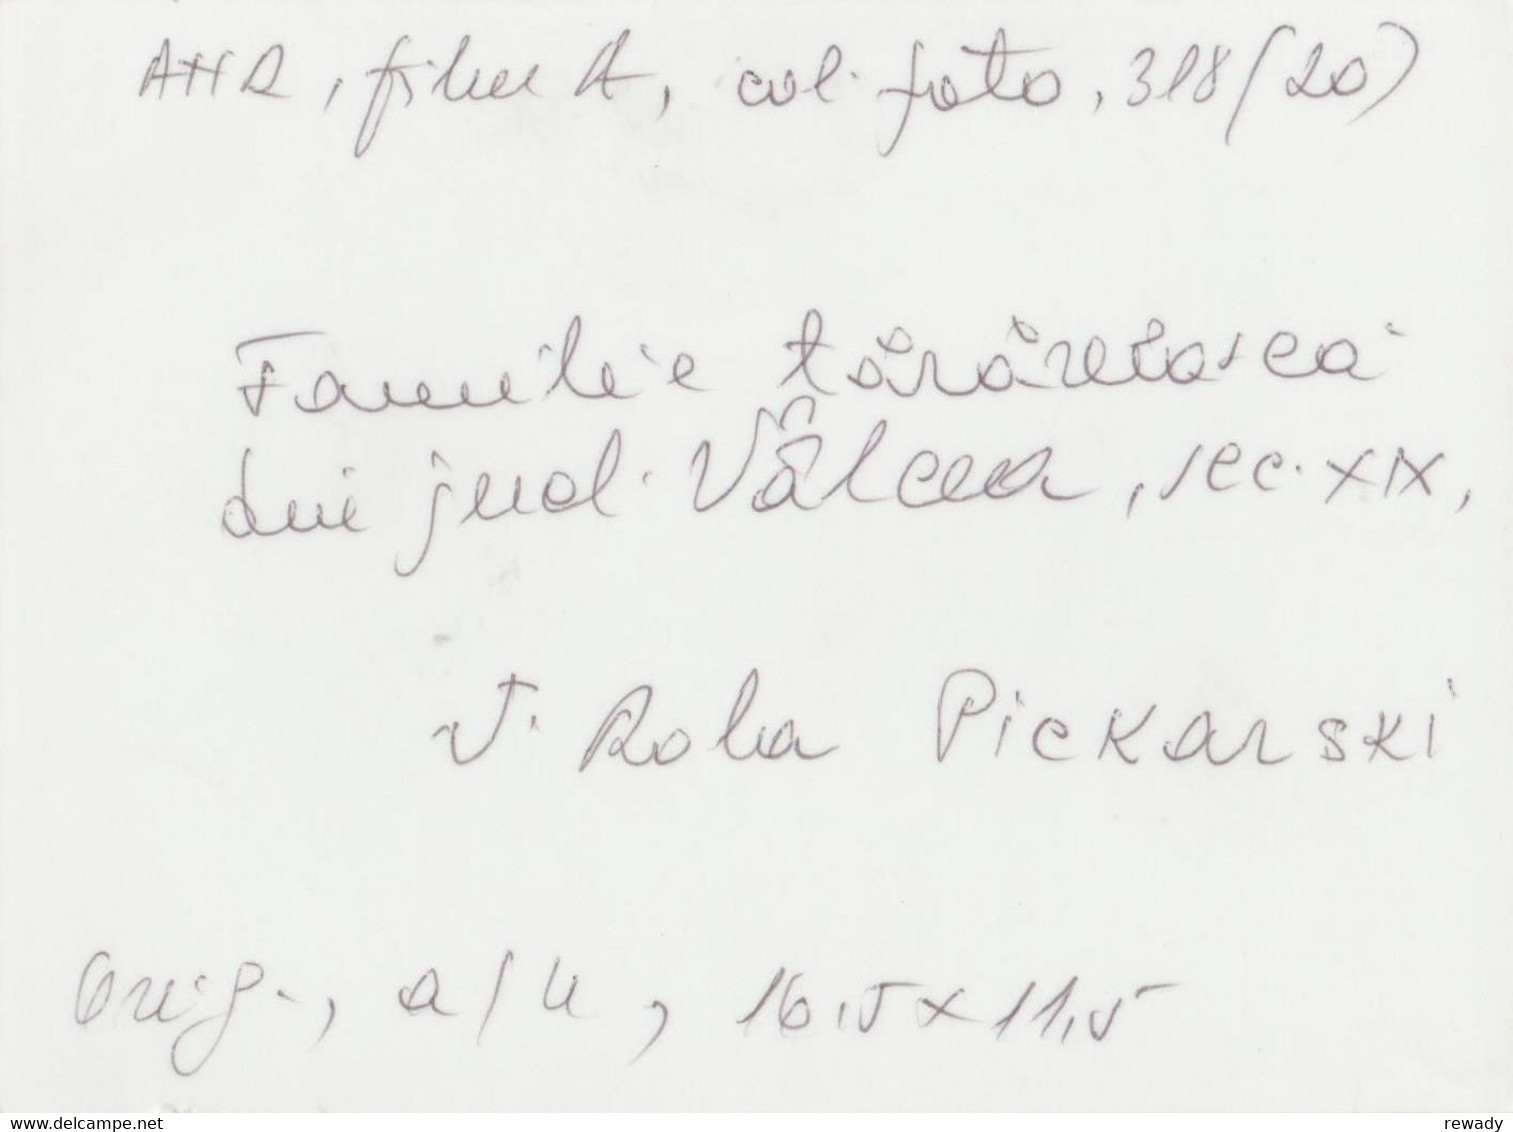 ANR, filme A, col. foto, 318 (20)
Familie țărănească
din jud. Vâlcea, sec. XIX,
V. Rola Piekarski
Orig., a/n, 16,5 x 11,5
www.delcampe.net
rewady